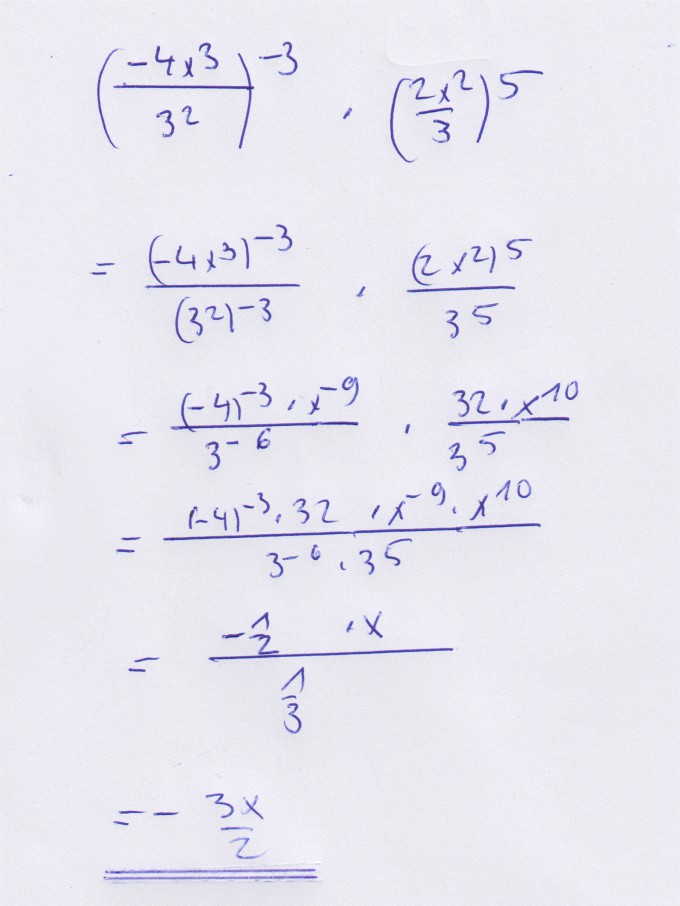 (-4x³/3²)⁻³ · (2x²/3)⁵
= (-4x³)⁻³/(3²)⁻³ · (2x²)⁵/3⁵
= (-4)⁻³·x⁻⁹/3⁻⁶ · 32·x¹⁰/3⁵
= (-4)⁻³·32·x⁻⁹·x¹⁰/3⁻⁶·3⁵
= -1/2 ·x/1/3
= - 3x/2